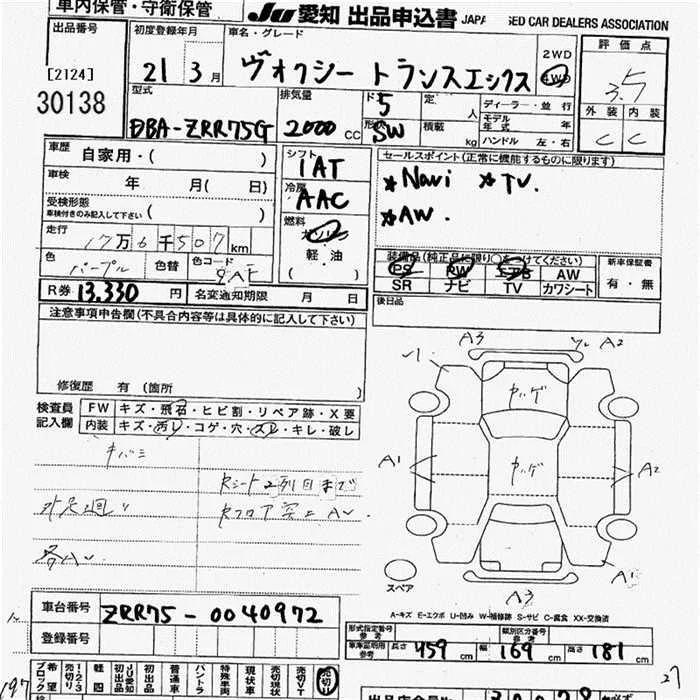 車内保管・守衛保管
JU 愛知 出品申込書 JAPA SED CAR DEALERS ASSOCIATION
出品番号
[2124]
30138
初度登録年月
21年 3月
車名・グレード
ヴォクシー トランスエックス
2WD
4WD
評価点
3.5
外装 内装
C C
型式
DBA-ZRR75G
排気量
2000 CC
ド 5
形状 SW
定 人
積載 kg
ディーラー・並行
モデル年式 年
ハンドル 左・右
車歴
自家用・( )
車検
年 月( 日)
受検形態
車検付きのみ記入して下さい ( )
走行
17万6千507km
色 パープル 色替 色コード
シフト
IAT
冷房
AAC
燃料
ガソリン
軽・油
セールスポイント(正常に機能するものに限ります)
*Navi *TV.
*AW.
装備品(純正品に限り○をつけてください)
PS PW エアB AW
SR ナビ TV カワシート
新車保証書
有・無
後日品
R券 13.330 円 名変通知期限 月 日
注意事項申告欄(不具合内容等は具体的に記入して下さい)
修復歴 有 (箇所
検査員記入欄
FW キズ・飛石・ヒビ割・リペア跡・X要
内装 キズ・汚レ・コゲ・穴・スレ・キレ・破レ
キバミ
内シート2列目まで
A3
A2
ヤッゲ
A1
ヤッゲ
A2
A1
A3
スペア
A-キズ E-エクボ U-凹み W-補修跡 S-サビ C-腐食 XX-交換済
車台番号 ZRR75-0040972
登録番号
形式指定番号 参考
類別区分番号 参考
車庫証明用参考 長さ 459 cm 幅 169 cm 高さ 181 cm
27
197
希望ブロック
1・2・3売切り
軽四
JU愛知初出品
初出品
普通車
バントラ
特殊車両
現状車
売切現状
売切VT
売切り
出品店会